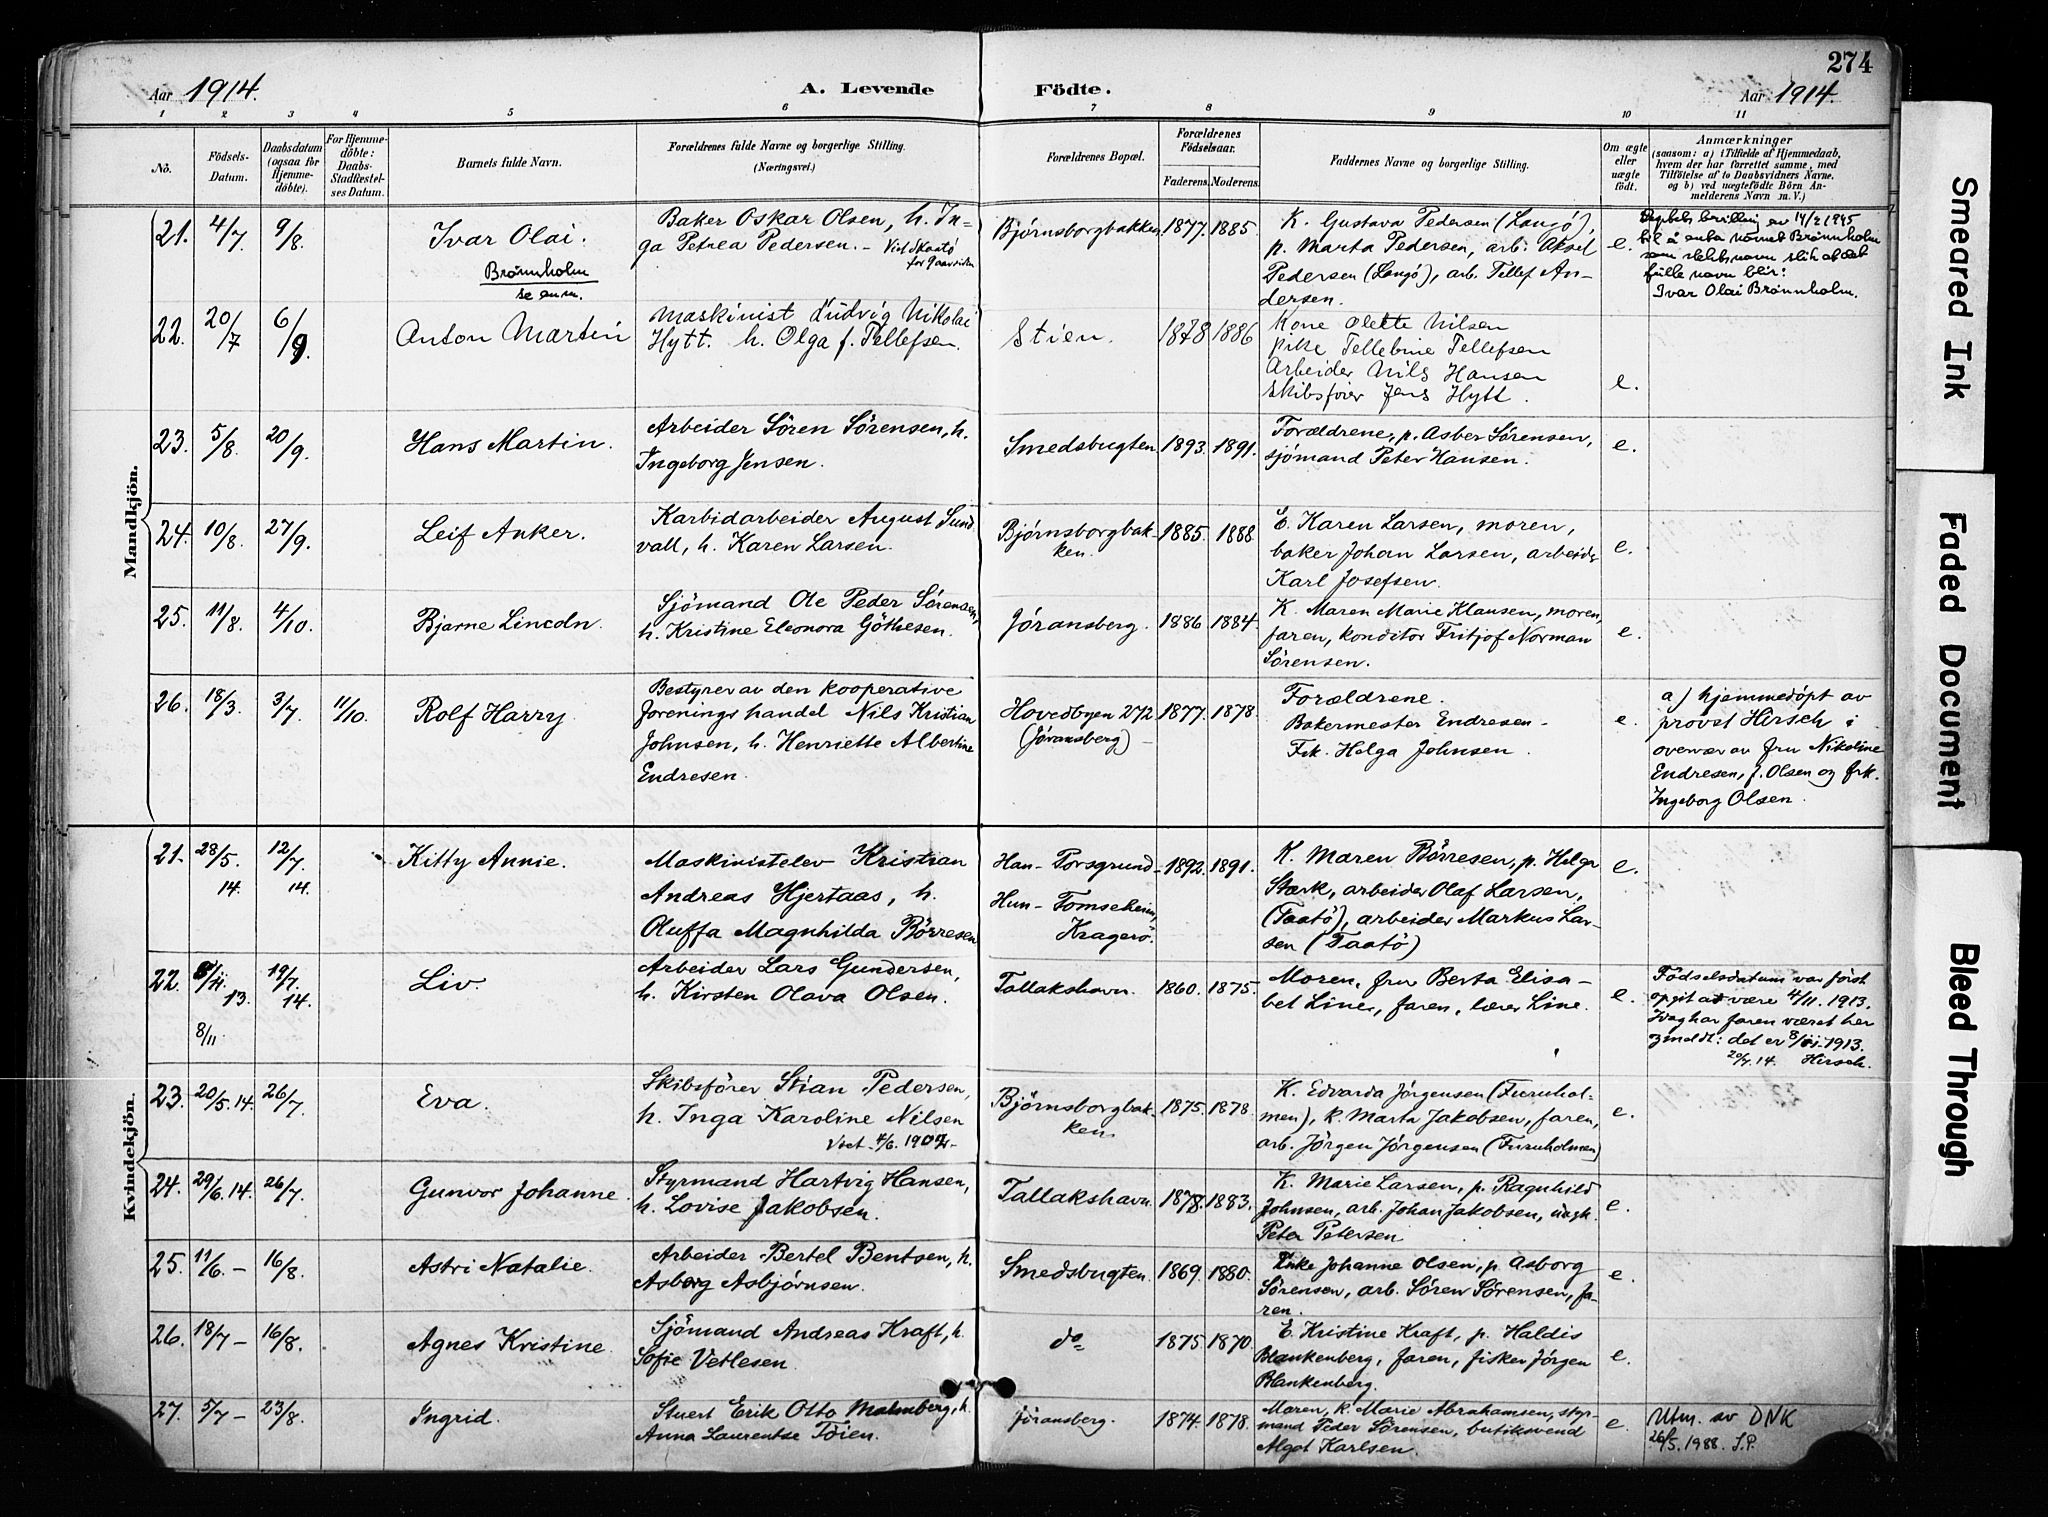 274
Aar 1914. A. Levende Födte. Aar 1914.
1 2 3 4 5 6 7 8 9 10 11
No. Födsels-Datum. Daabsdatum (ogsaa for Hjemmedöbte). For Hjemmedöbte: Daabs-Stadfestelses Datum. Barnets fulde Navn. Forældrenes fulde Navne og borgerlige Stilling. (Næringsvei.) Forældrenes Bopæl. Forældrenes Födselsaar. Faderens. Moderens. Faddernes Navne og borgerlige Stilling. Om ægte eller uægte födt. Anmærkninger
(saasom: a) i Tilfælde af Hjemmedaab,
hvem der har forrettet samme, med
Tilföielse af to Daabsvidners Navne.
og b) ved uægtefödte Börn An-
melderens Navn m. V.)
Mandkjön.
21. 4/7 9/8. Ivar Olai.
Brønnholm
se anm.
Baker Oskar Olsen, h. In-
ga Petrea Pedersen. – Viet Skaatö
Bjørnsborgbakken 1877. 1885.
K. Gustava Pedersen (Langö),
p. Marta Pedersen, arb. Aksel
Pedersen (Langö), arb. Tellef An-
dersen.
e.
bevilling av 14/2 1945
til å anta navnet Brønnholm
som slektsnavn slik at det
fulle navn blir:
Ivar Olai Brønnholm.
22. 20/7 6/9. Anton Martin
Maskinist Ludvig Nikolai
Hytt. h. Olga f. Tellefsen.
Stien. 1878 1886
Kone Olette Nilsen
pike Tellebine Tellefsen
Arbeider Nils Hansen
Skibsfører Jens Hytt.
e.
23. 5/8. 20/9. Hans Martin.
Arbeider Sören Sörensen, h.
Ingeborg Jensen.
Smedsbugten 1893. 1891.
Forældrene, p. Asber Sörensen,
sjömand Peter Hansen.
e.
24. 10/8. 27/9. Leif Anker.
Karbidarbeider August Sund
vall, h. Karen Larsen.
Bjørnsborgbak-
ken. 1885. 1888
E. Karen Larsen, moren,
baker Johan Larsen, arbeider
Karl Josefsen.
e.
25. 11/8. 4/10. Bjarne Lincoln.
Sjömand Ole Peder Sörensen,
h. Kristine Eleonora Göthesen.
Jöransberg. 1886 1884.
K. Maren Marie Klausen, moren,
faren, konditor Fritjof Norman
Sörensen.
e.
26. 18/3. 3/7. 11/10. Rolf Harry
Bestyrer av den kooperative
forenings handel Nils Kristian
Johnsen, h. Henriette Albertine
Endresen.
Hovedbyen 272
(Jöransberg) 1877. 1878.
Forældrene.
Bakermester Endresen –
Frk. Helga Johnsen.
e.
a) hjemmedöpt av
provst Hirsch i
overvær av fru Nikoline
Endresen, f. Olsen og frk.
Ingeborg Olsen.
Kvindekjön.
21. 28/5. 14. 12/7. 14. Kitty Annie.
Maskinistelev Kristian
Andreas Hjertaas, h.
Oluffa Magnhilda Börresen
Han – Porsgrund –
Hun – Tomseheim,
Kragerö. 1892. 1891.
K. Maren Börresen, p. Helga
Stærk, arbeider Olaf Larsen,
(Taatö), arbeider Markus Lar-
sen (Taatö)
e.
22. 8/11. 13.
8/11. 19/7. 14. Liv.
Arbeider Lars Gundersen,
h. Kirsten Olava Olsen.
Tallakshavn. 1860. 1875.
Moren, fru Berta Elisa-
bet Line, faren, lærer Line.
e.
Födselsdatum var först
opgit at være 4/11. 1913.
Idag har faren været her
og meldt: det er 8/11. 1913.
20/7. 14. Hirsch.
23. 20/5. 14. 26/7. Eva.
Skibsförer Stian Pedersen,
h. Inga Karoline Nilsen
4/6. 1907. –
Bjørnsborgbak-
ken. 1875. 1878.
K. Edvarda Jörgensen (Furuhol-
men), k. Marta Jakobsen, faren,
arb. Jörgen Jörgensen (Furuholmen)
e.
24. 29/6. 14. 26/7. Gunvor Johanne.
Styrmand Hartvig Hansen,
h. Lovise Jakobsen.
Tallakshavn. 1878. 1883.
K. Marie Larsen, p. Ragnhild
Johnsen, arb. Johan Jakobsen, ungk.
Peter Petersen
e.
25. 11/6. – 16/8. Astri Natalie.
Arbeider Bertel Bentsen, h.
Asborg Asbjörnsen.
Smedsbugten. 1869. 1880.
Enke Johanne Olsen, p. Asborg
Sörensen, arb. Sören Sörensen, fa-
ren.
e.
26. 18/7 – 16/8. Agnes Kristine.
Sjömand Andreas Kraft, h.
Sofie Vetlesen.
do 1875. 1870.
E. Kristine Kraft, p. Haldis
Blankenberg, faren, fisker Jörgen
Blankenberg.
e.
27. 5/7 – 23/8. Ingrid.
Stuert Erik Otto Malmberg, h.
Anna Laurentse Töien.
Jöransberg. 1874. 1878.
Moren, k. Marie Abrahamsen, styr-
mand Peder Sörensen, butiksvend
Algot Karlsen.
e.
Utm. av DNK
26/5. 1988. S.P.
Smeared Ink
Faded Document
Bleed Through